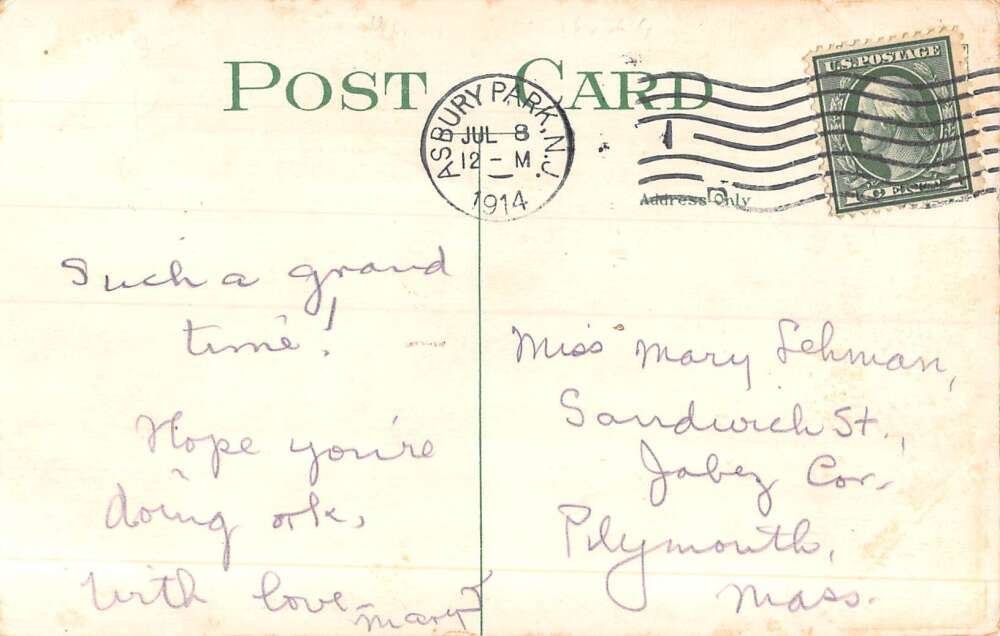 POST CARD
ASBURY PARK, N.J.
JUL 8
12 - M
1914
U.S. POSTAGE
Address Only
Such a grand
time!
Hope you're
doing ok,
With love
Mary
Miss Mary Lehman,
Sandwich St.,
Jabez Cor.
Plymouth,
Mass.